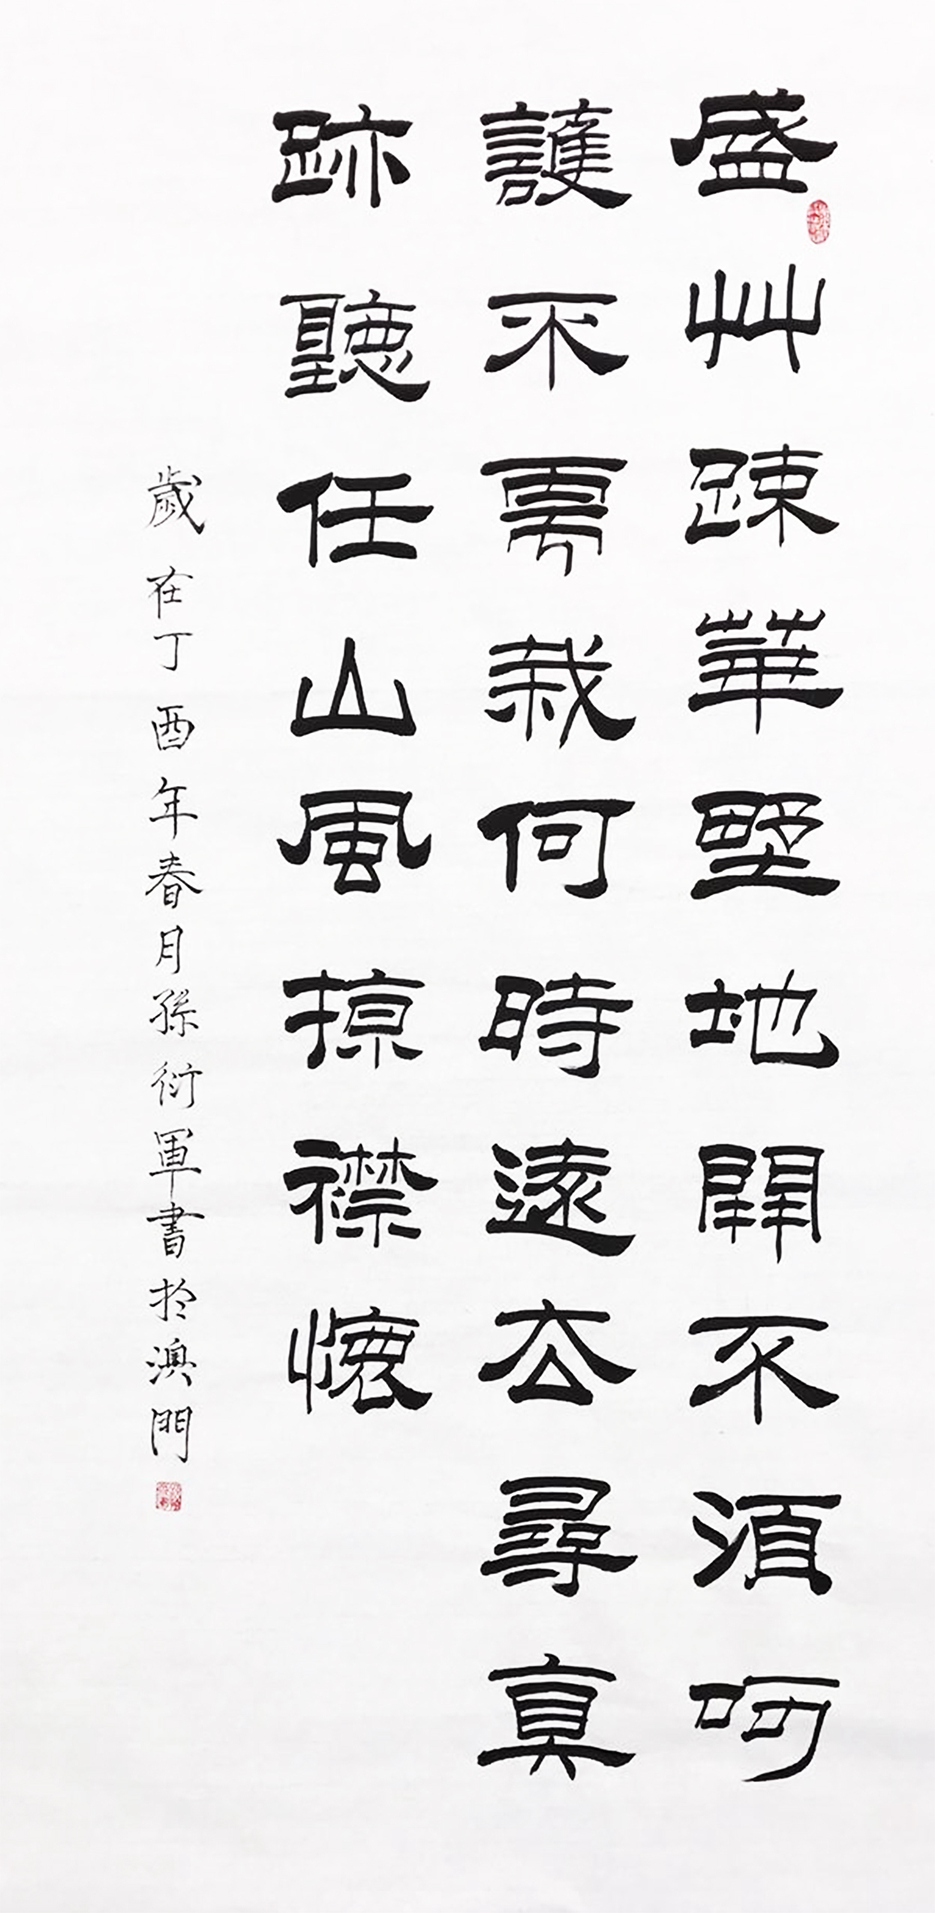 盛艸踈華墅地開不須呵
護不需栽何時遠去尋真
跡聽任山風掠襟懷
歲在丁酉年春月孫衍軍書於澳門